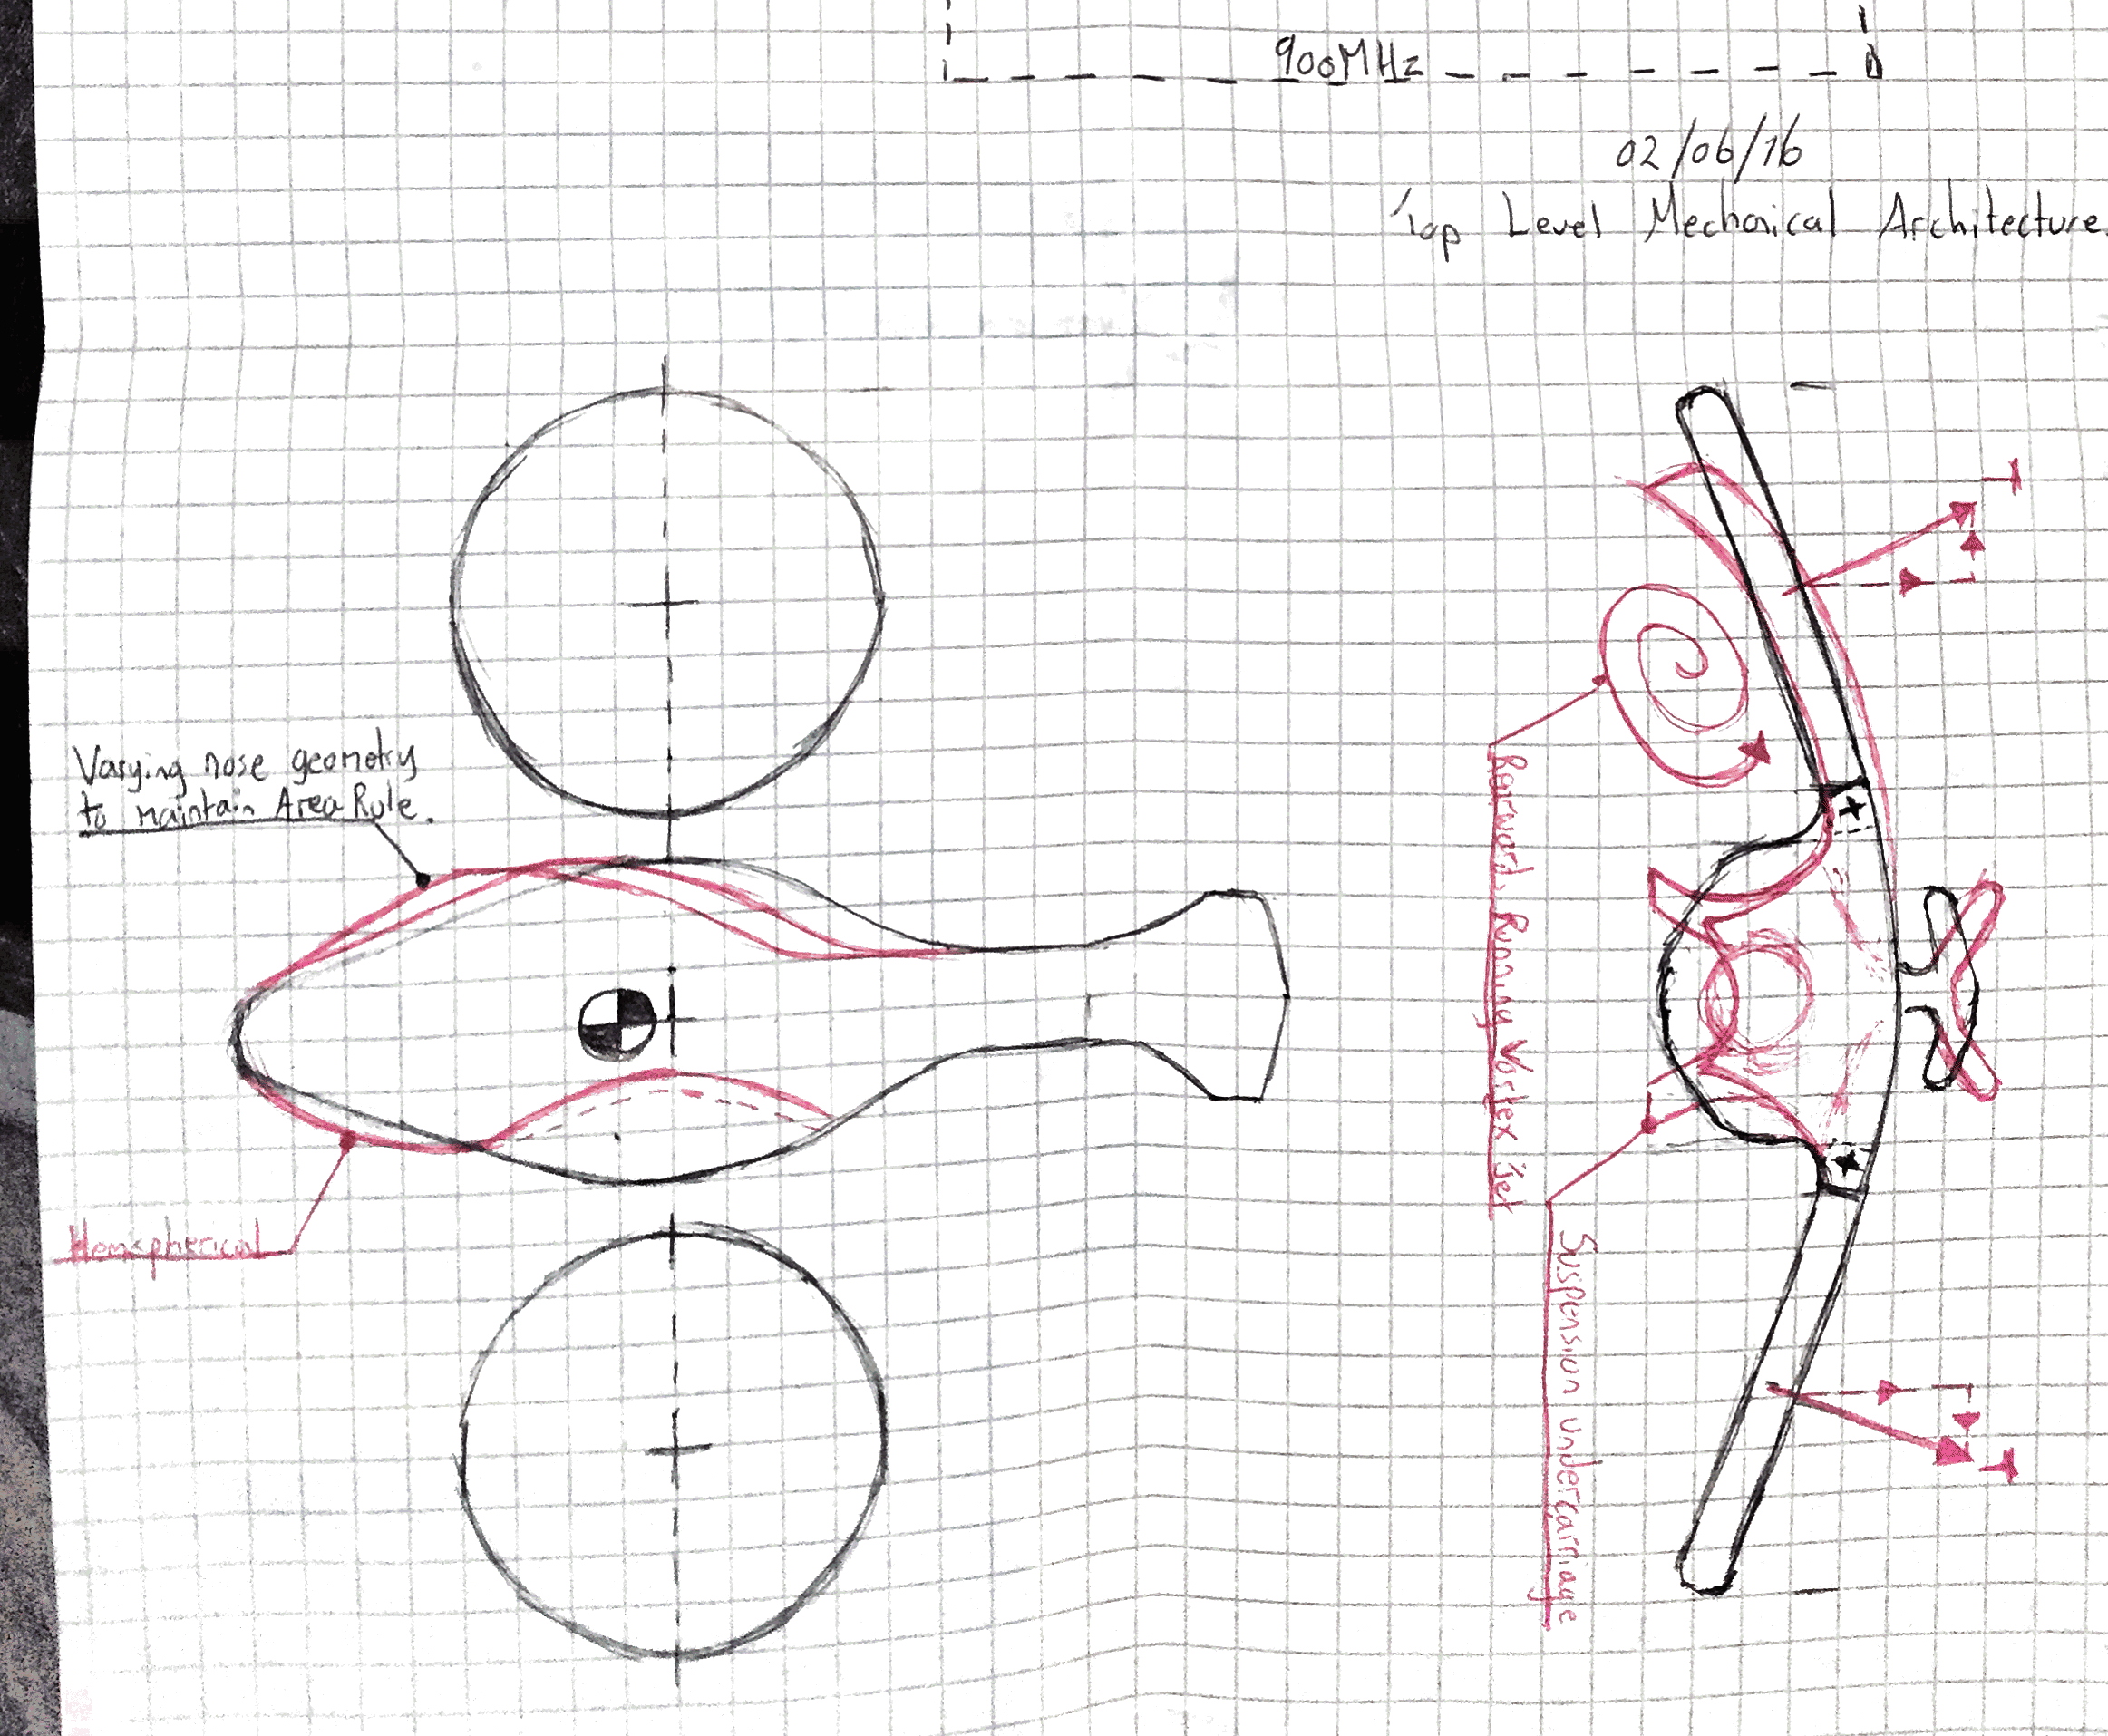 900MHz
02/06/16
Top Level Mechanical Architecture.
Varying nose geometry
to maintain Area Rule.
Hemispherical
Rearward Running Vortex Jet
Suspension undercarriage